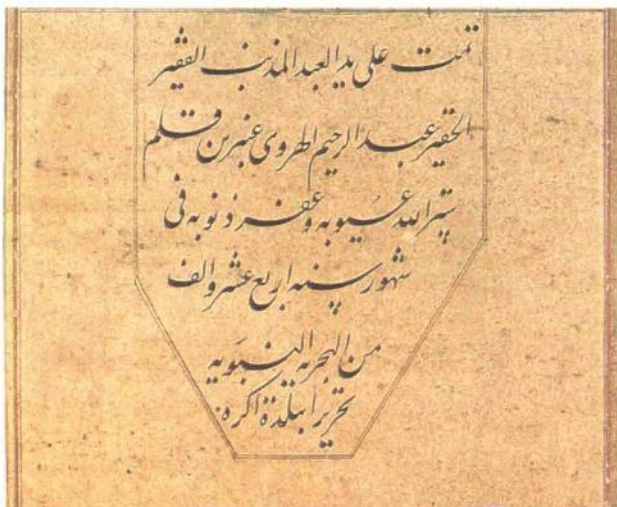 تمت علی ید العبد المذنب الفقیر
الحقیر عبد الرحیم الهروی عنبرین قلم
ستر الله عیوبه و غفر ذنوبه فی
شهور سنه اربع عشر و الف
من الهجریه النبویه
تحریرا ببلدة اکره